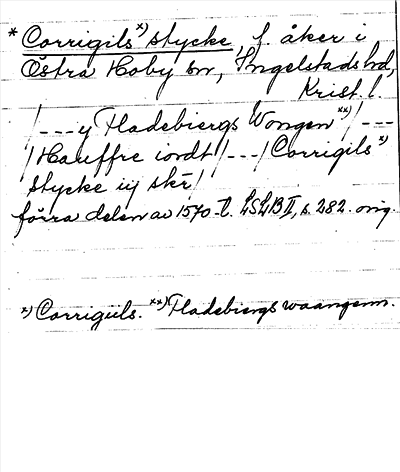 * Corrigils x) stycke, f. åker i
Östra Hoby sn, Ingelstads hd,
Krist. l.
/---y Fladebiergs Wongen xx)/---
/Hauffre iordt/---/Corrigils x)
stycke iij skr/
förra delen av 1570-t. LSLB II, s. 282. orig.
x) Corrigiils. xx) Fladebiergs waangenn.